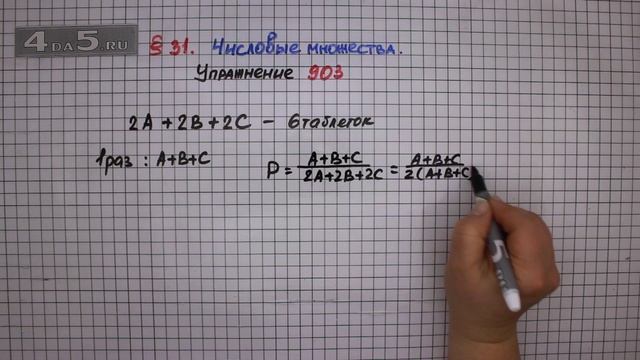 4DA5.RU
§ 31. Числовые множества.
Упражнение 903
2A + 2B + 2C – 6 таблеток
1 раз : A+B+C
P = (A+B+C)/(2A+2B+2C) = (A+B+C)/(2(A+B+C)